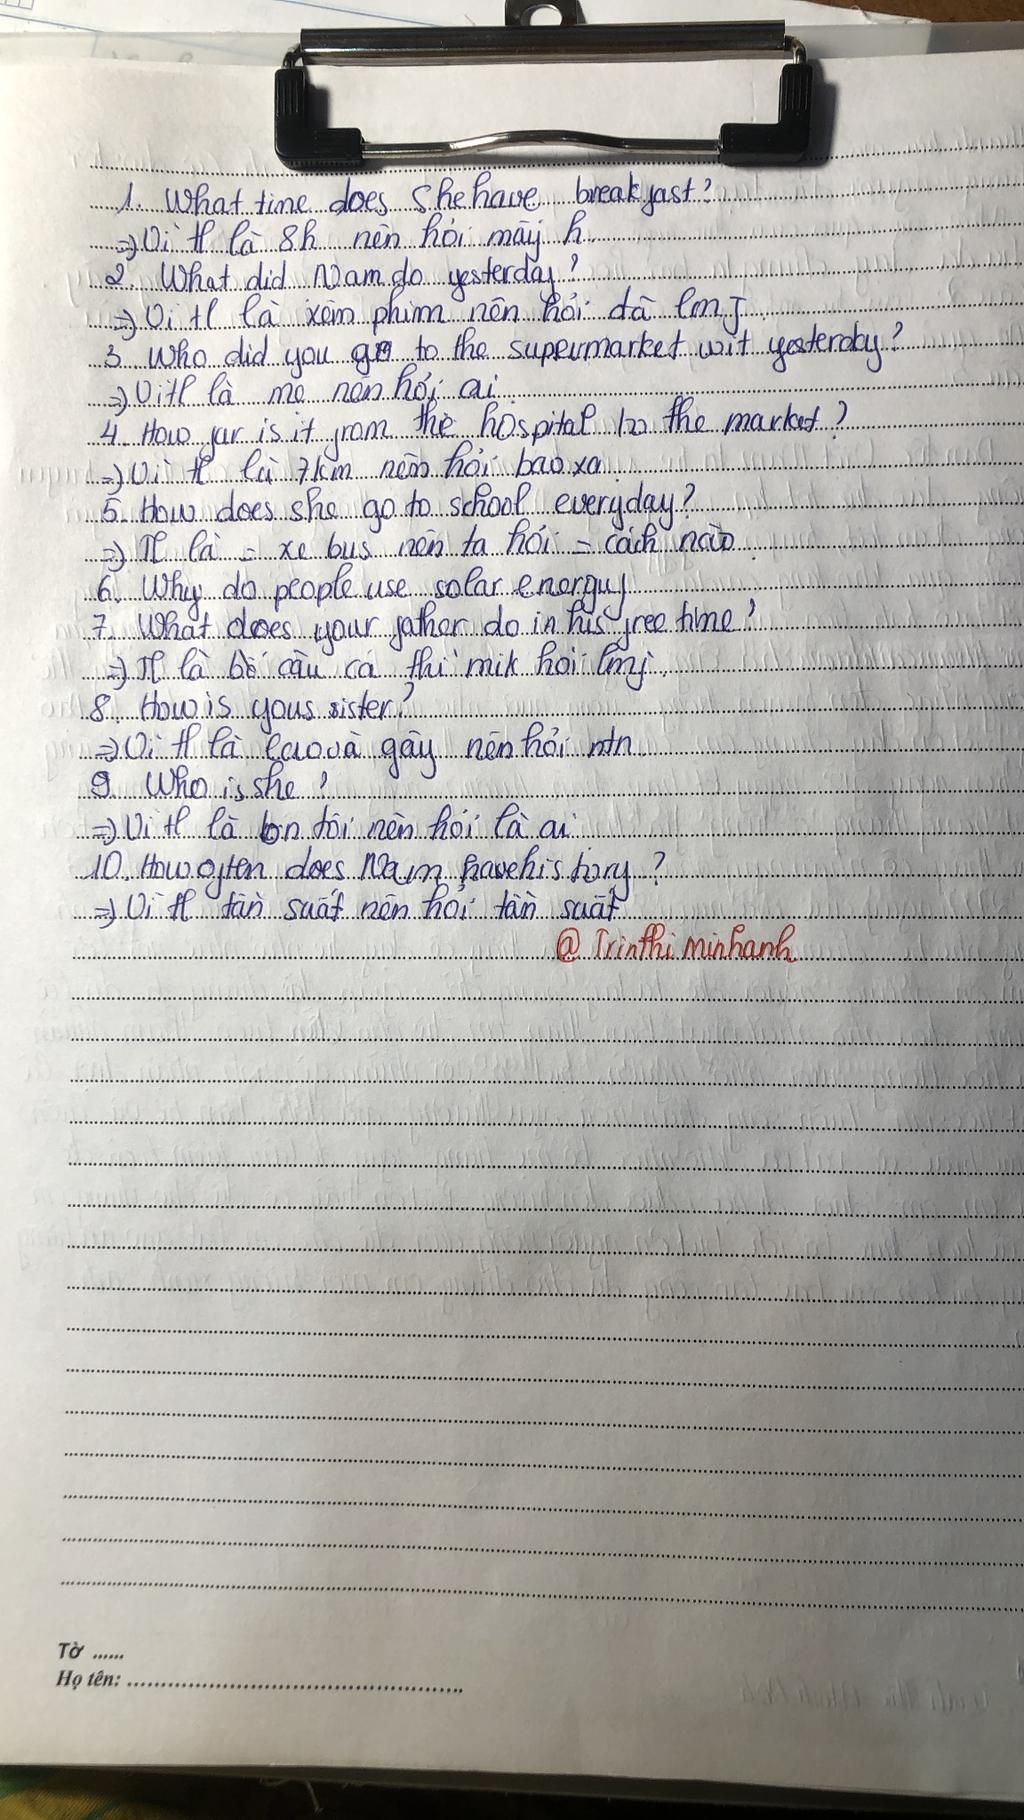 1. What time does she have breakfast?
=) Vì tl là 8h nên hỏi mấy h
2. What did Nam do yesterday?
=) Vì tl là xem phim nên hỏi đã lmj
3. Who did you go to the supermarket wit yesterday?
=) Vì tl là mẹ nên hỏi ai
4. How far is it from the hospital to the market?
=) Vì tl là 7km nên hỏi bao xa
5. How does she go to school everyday?
=) Tl là = xe bus nên ta hỏi = cách nào
6. Why do people use solar energy
7. What does your father do in his free time?
=) Tl là bố câu cá thì mik hỏi lmj
8. How is yous sister?
=) Vì tl là cao và gầy nên hỏi ntn
9. Who is she?
=) Vì tl là bn tôi nên hỏi là ai
10. How often does Nam have history?
=) Vì tl tần suất nên hỏi tần suất
@ Trinthi minhanh
Tờ ......
Họ tên: ..................................................